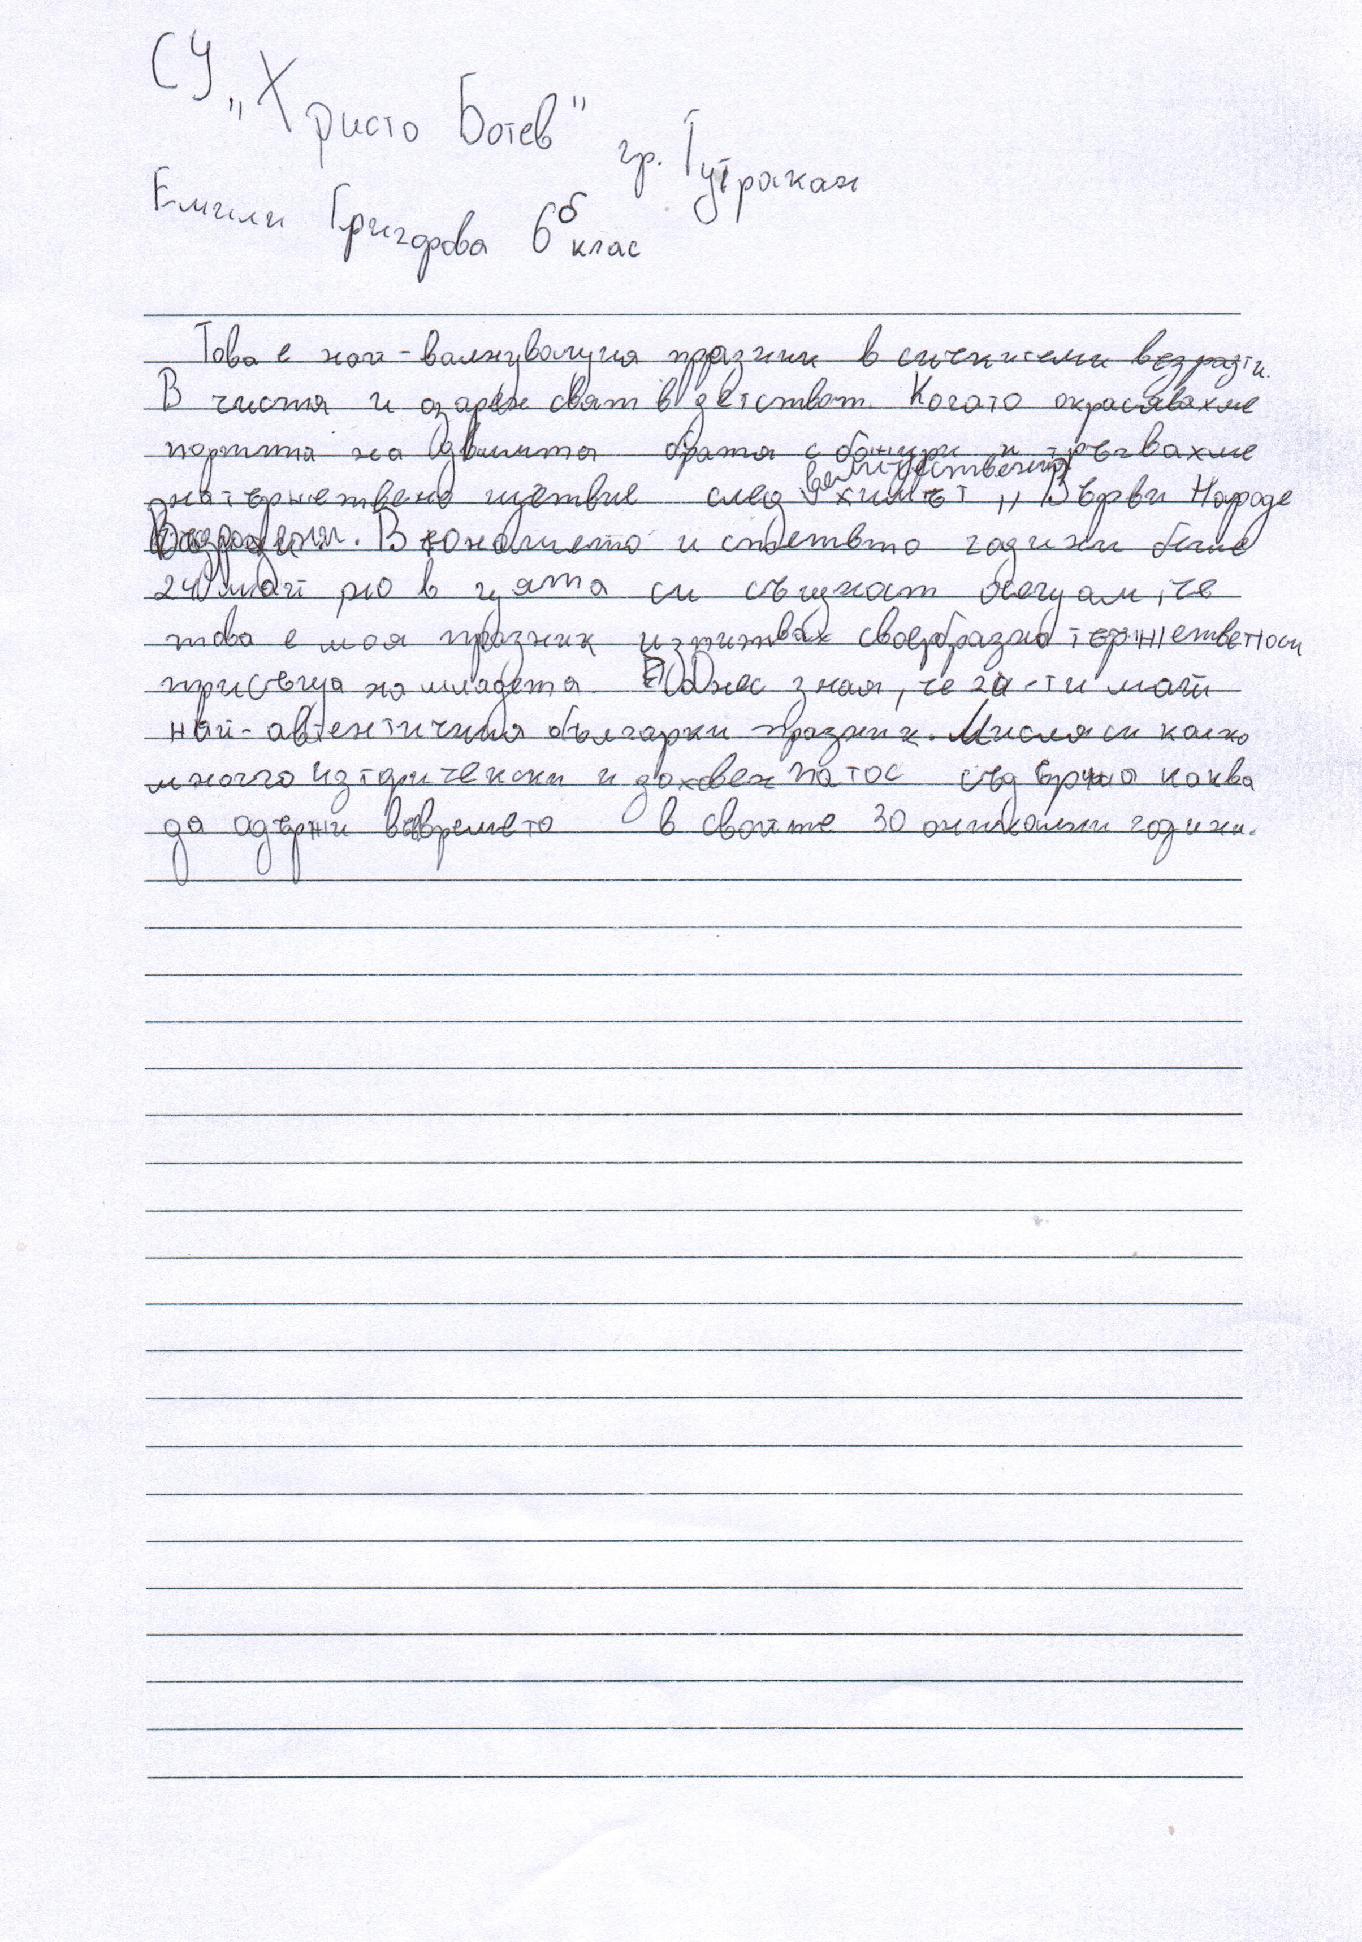 СУ „Христо Ботев" гр. Тутракан
Емили Григорова 6б клас
Това е най-валнуващия празник в сичкитеми възрасти.
В чистия и озарен свят в детството. Когато окрасявахме
портита на двата с божури и тръгвахме
натържествено шествие след величествения химнът „Върви Народе
Възродени. В юношието и годики беше
24 май но в цята си същност осещам, че
това е моя празник изпитвах своеобразна тържественост
присъща на младета. Днес зная, че 24-ти май
най-автентичния българки празник. Мисля си колко
много изторически и доховен патос съдържа каква
да одържи вевремето в свойте 30 оникални години.